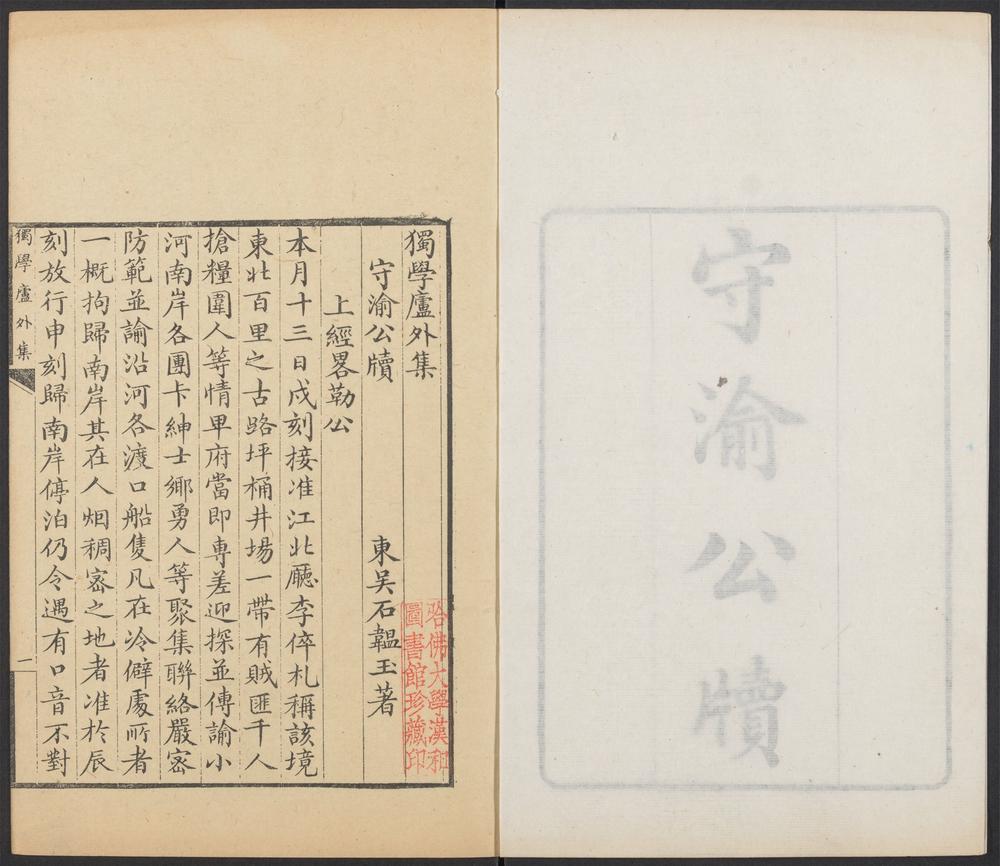 守渝公牘
獨學廬外集
守渝公牘
東吳石韞玉著
上經畧勒公
本月十三日戌刻接准江北廳李倅札稱該境
東北百里之古路坪桶井場一帶有賊匪千人
搶糧圍人等情卑府當即專差迎探並傳諭小
河南岸各團卡紳士鄉勇人等聚集聯絡嚴密
防範並諭沿河各渡口船隻凡在冷僻處所者
一概拘歸南岸其在人烟稠密之地者准於辰
刻放行申刻歸南岸停泊仍令遇有口音不對
獨學廬外集
一
哈佛大學漢和
圖書館珍藏印